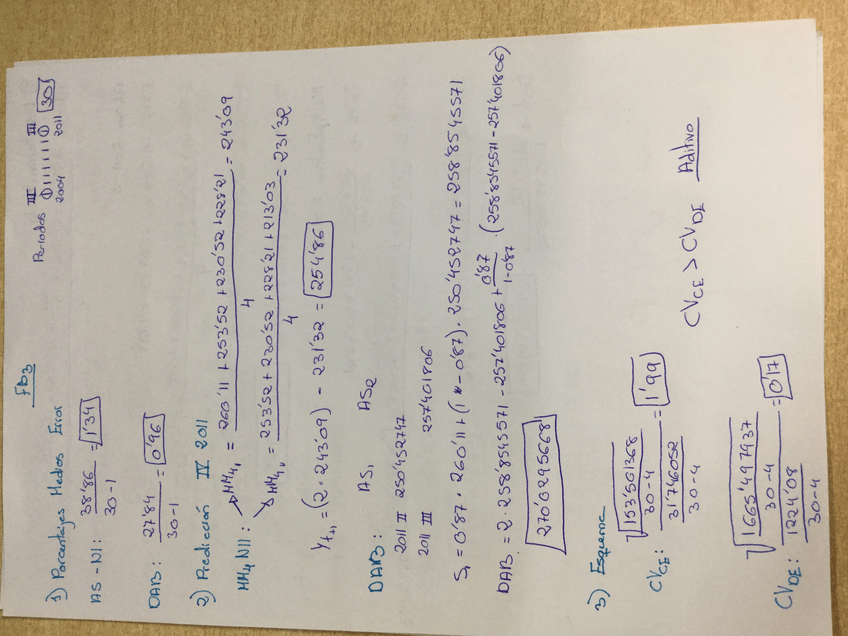 FD3
Periodos III ①||||||① III 30
2004 2011
1) Porcentajes Medios Error
AS-NI: 38'86 / 30-1 = 1'34
DAB: 27'84 / 30-1 = 0'96
2) Predicción IV 2011
MM4 NII: MM4, = 260'11 + 253'52 + 230'52 + 228'21 / 4 = 243'09
MM4, = 253'52 + 230'52 + 228'21 + 213'03 / 4 = 231'32
Yt+1 = (2 · 243'09) - 231'32 = 254'86
DAB: AS1 AS2
2011 II 250'452747
2011 III 257'401806
S1 = 0'87 · 260'11 + (1 - 0'87) · 250'452747 = 258'8545571
DAB = 2 · 258'8545571 - 257'401806 + 0'87 / 1-0'87 · (258'8545571 - 257'401806)
270'0295668
3) Esquema
CVCE: √153'501368 / 30-4 / 31'746052 / 30-4 = 1'99
CVCE > CVDE Aditivo
CVDE: √1665'497937 / 30-4 / 1224'08 / 30-4 = 0'17